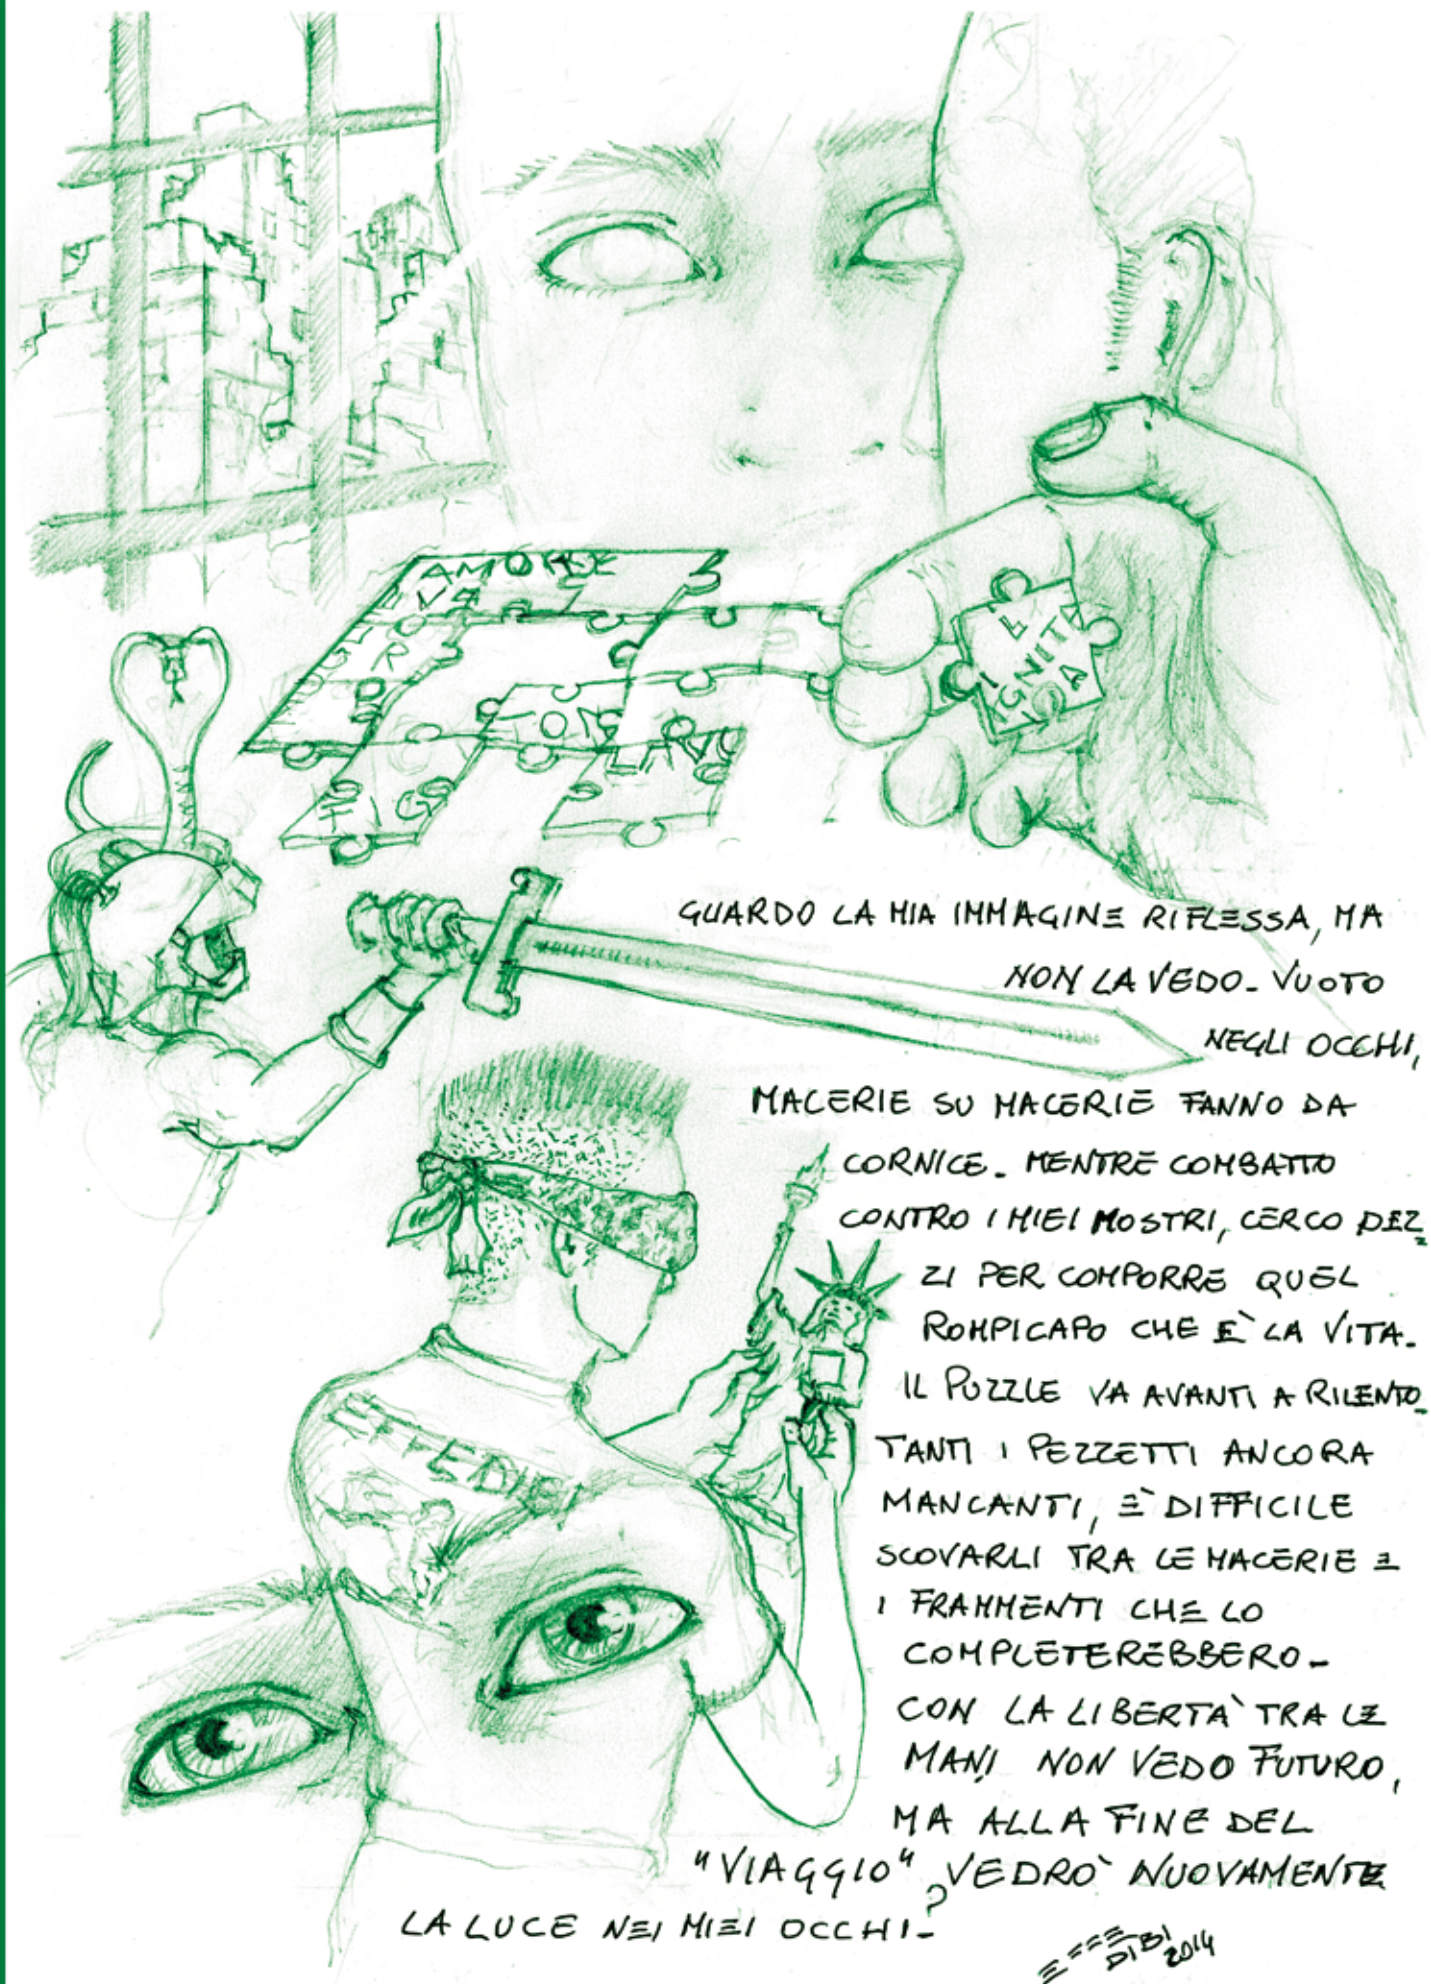 AMORE
LA
DIGNITÀ
GUARDO LA MIA IMMAGINE RIFLESSA, MA
NON LA VEDO. VUOTO
NEGLI OCCHI,
MACERIE SU MACERIE FANNO DA
CORNICE. MENTRE COMBATTO
CONTRO I MIEI MOSTRI, CERCO PEZ
ZI PER COMPORRE QUEL
ROMPICAPO CHE È LA VITA.
IL PUZZLE VA AVANTI A RILENTO.
TANTI I PEZZETTI ANCORA
MANCANTI, È DIFFICILE
SCOVARLI TRA LE MACERIE E
I FRAMMENTI CHE LO
COMPLETEREBBERO.
CON LA LIBERTÀ TRA LE
MANI NON VEDO FUTURO,
MA ALLA FINE DEL
"VIAGGIO", VEDRÒ NUOVAMENTE
LA LUCE NEI MIEI OCCHI.?
EFFEDIBI
EFFE
DIBI
2014